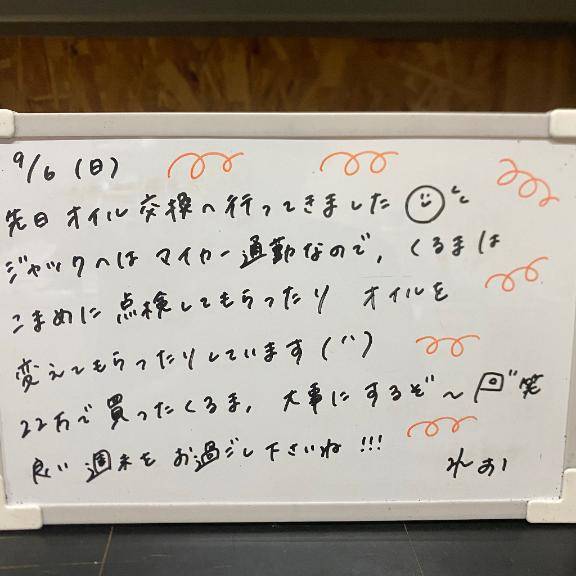 9/6(日)
先日オイル交換へ行ってきました
ジャックへはマイカー通勤なので、くるまは
こまめに点検してもらったり オイルを
変えてもらったりしています(^^)
22万で買ったくるま、大事にするぞ〜 笑
良い週末をお過ごし下さいね!!!